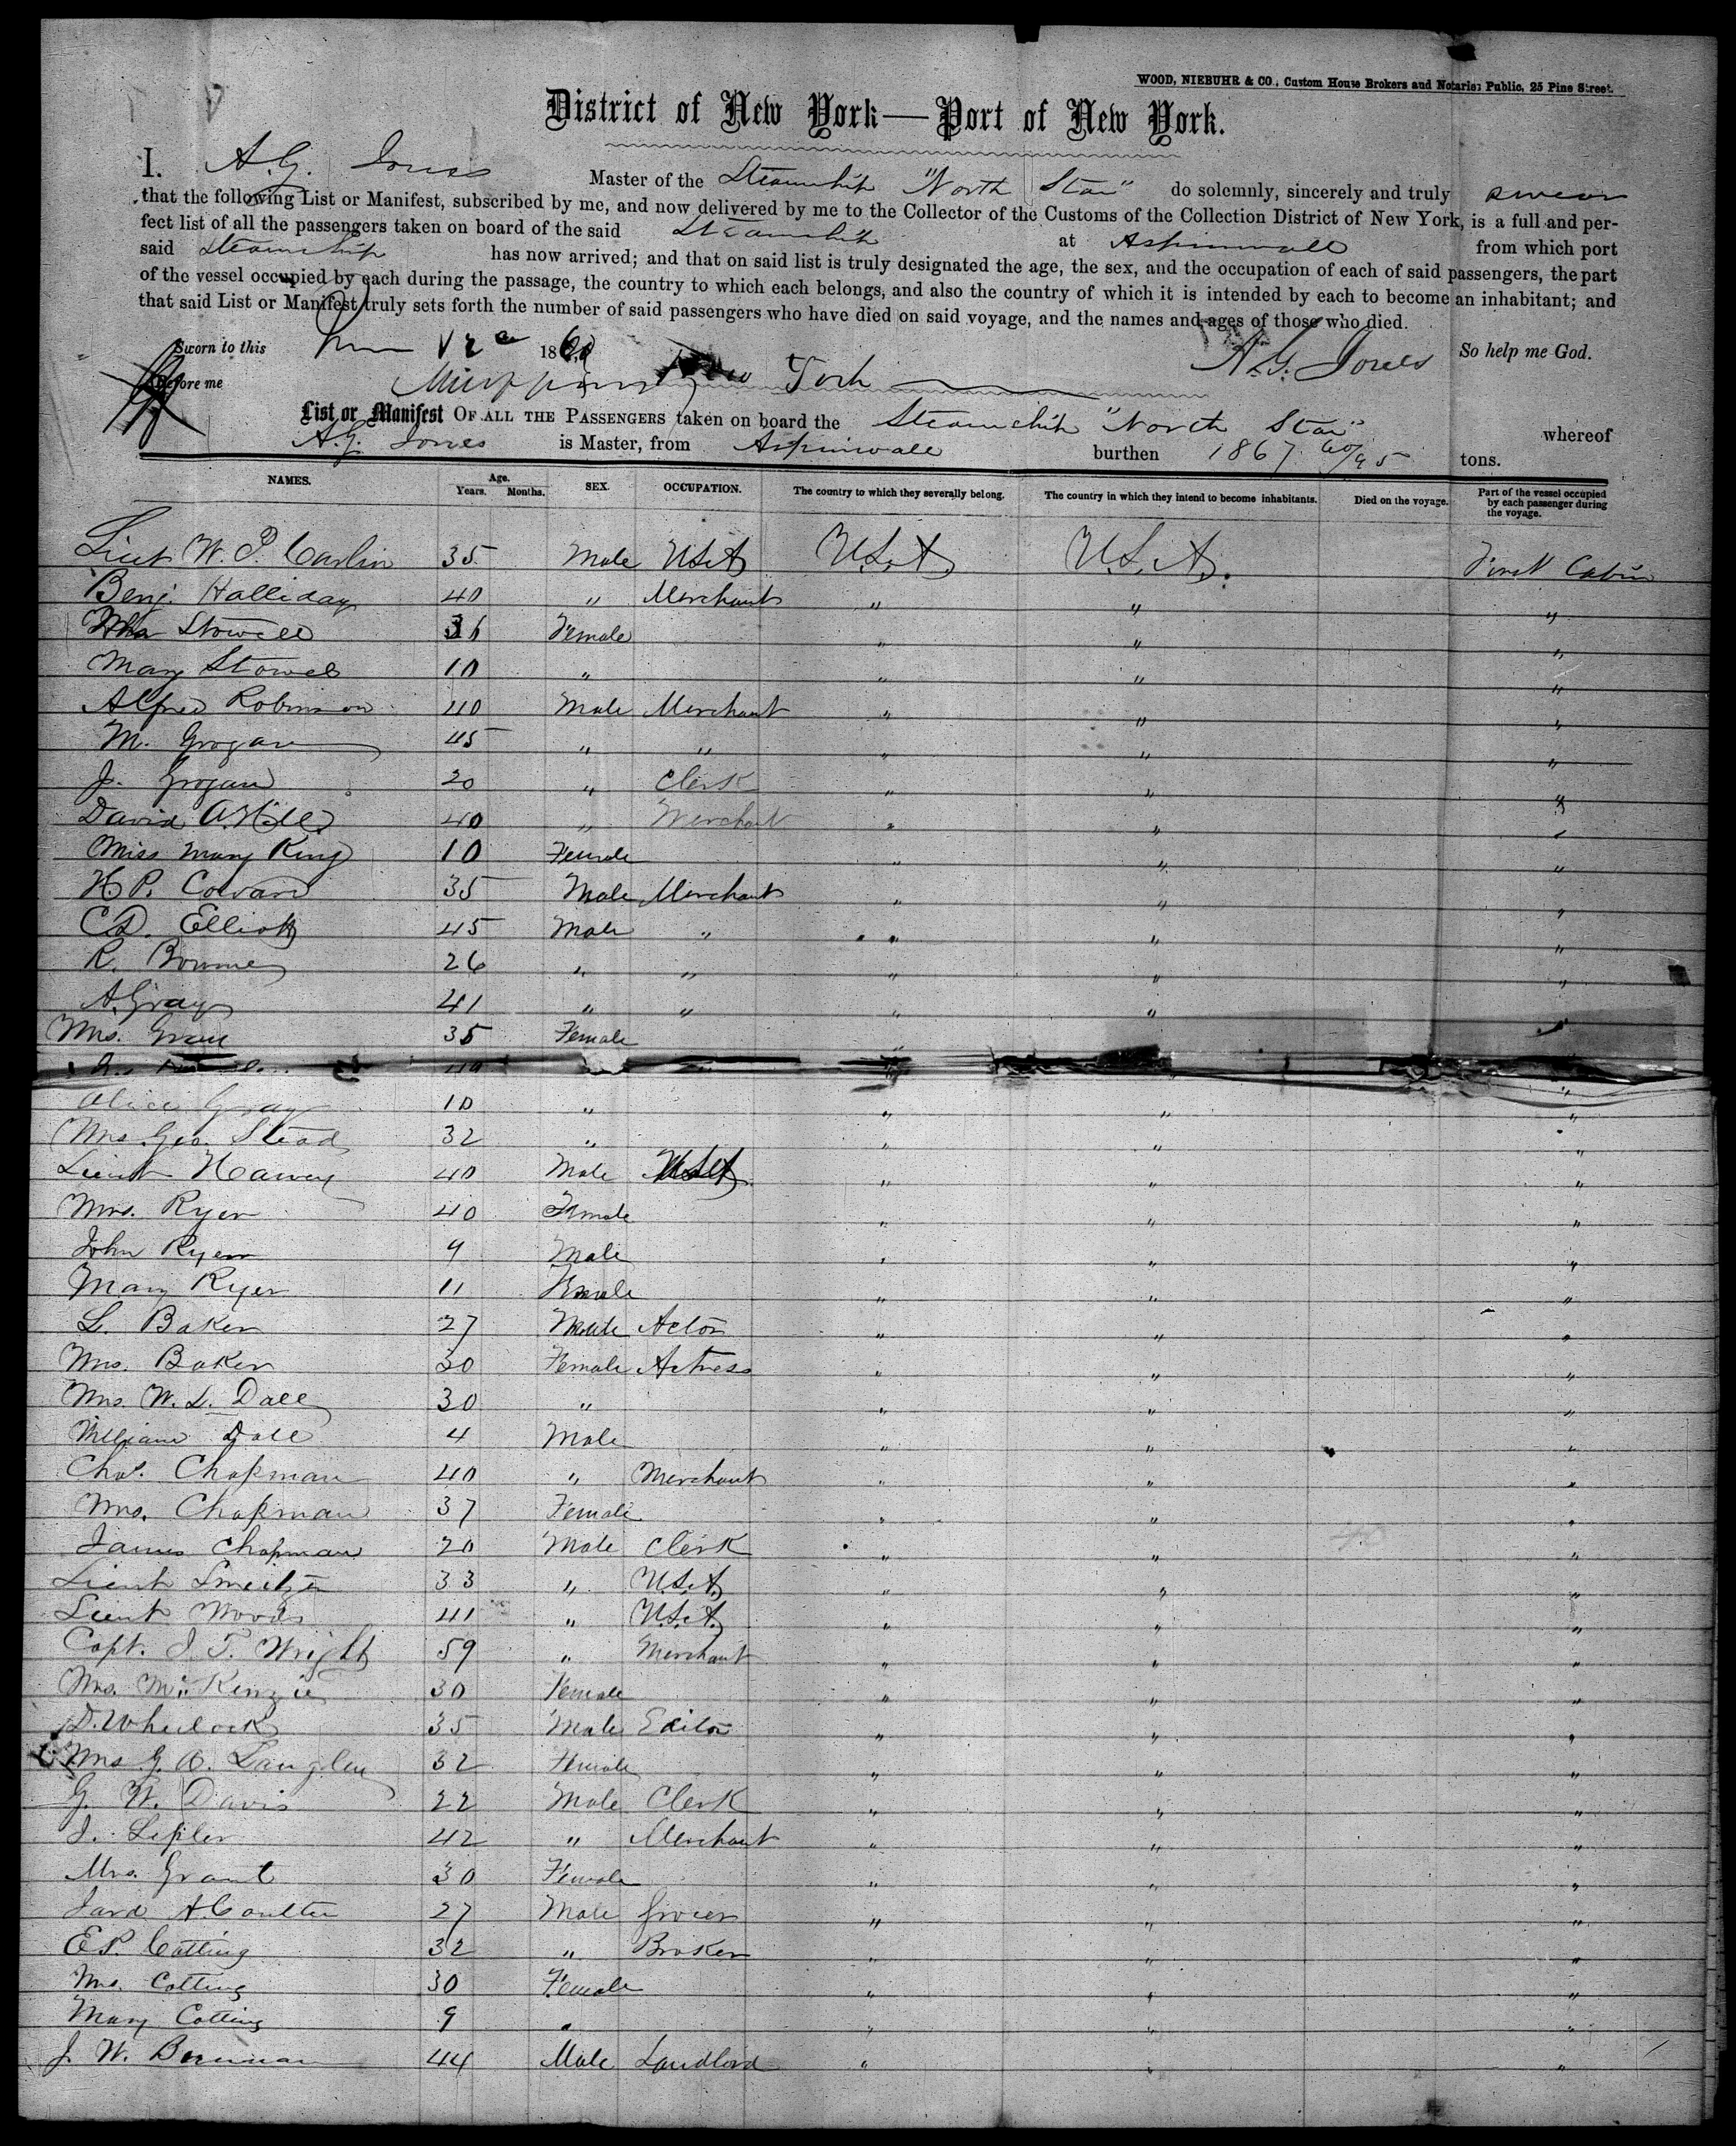 WOOD, NIEBUHR & CO., Custom House Brokers and Notaries Public, 25 Pine Street.
District of New York—Port of New York.
I. A.G. Jones Master of the Steamship "North Star" do solemnly, sincerely and truly swear
that the following List or Manifest, subscribed by me, and now delivered by me to the Collector of the Customs of the Collection District of New York, is a full and per-
fect list of all the passengers taken on board of the said Steamship at Aspinwall from which port
said Steamship has now arrived; and that on said list is truly designated the age, the sex, and the occupation of each of said passengers, the part
of the vessel occupied by each during the passage, the country to which each belongs, and also the country of which it is intended by each to become an inhabitant; and
that said List or Manifest truly sets forth the number of said passengers who have died on said voyage, and the names and ages of those who died.
Sworn to this 1860 A.G. Jones So help me God.
Before me York
List or Manifest OF ALL THE PASSENGERS taken on board the Steamship "North Star" whereof
A.G. Jones is Master, from Aspinwall burthen 1867 60/95 tons.
NAMES. Age. Years. Months. SEX. OCCUPATION. The country to which they severally belong. The country in which they intend to become inhabitants. Died on the voyage. Part of the vessel occupied by each passenger during the voyage.
Lieut W. P. Carlin 35 Male U.S.A. U.S.A. U.S.A. First Cabin
Benj. Halliday 40 " Merchant " " "
Stowell 36 Female " " "
Mary Stowel 10 " " " "
Alfred Robinson 40 Male Merchant " " "
M. Grogan 45 " " " " "
J. Grogan 20 " Clerk " " "
David A. Hill 40 " Merchant " " "
Miss Mary King 10 Female " " "
H. P. Cowan 35 Male Merchant " " "
C.D. Elliott 45 Male " " " "
R. Bowme 26 " " " " "
A. Gray 41 " " " " "
Mrs. Gray 35 Female "
Alice Gray 10 " " " "
Mrs. Geo. Stead 32 " " " "
Lieut Harvey 40 Male U.S.A. " " "
Mrs. Ryer 40 Female " " "
John Ryer 9 Male " " "
Mary Ryer 11 Female " " "
L. Baker 27 Male Actor " " "
Mrs. Baker 20 Female Actress " " "
Mrs. W. L. Dall 30 " " " "
William Dall 4 Male " " "
Chas. Chapman 40 " Merchant " " "
Mrs. Chapman 37 Female " " "
James Chapman 20 Male Clerk " " "
Lieut 33 " U.S.A. " " "
Lieut Woods 41 " U.S.A. " " "
Capt. J. T. Wright 59 " Merchant " " "
Mrs. McKenzie 30 Female " " "
D. Wheelock 35 Male Editor " " "
Mrs. G. A. Langley 32 Female " " "
G. W. Davis 22 Male Clerk " " "
J. Lepler 42 " Merchant " " "
Mrs. Grant 30 Female " " "
A. Coulter 27 Male Grocer " " "
E.P. Cotting 32 " Broker " " "
Mrs. Cotting 30 Female " " "
Mary Cotting 9 " " " "
J. W. 44 Male Landlord " " "